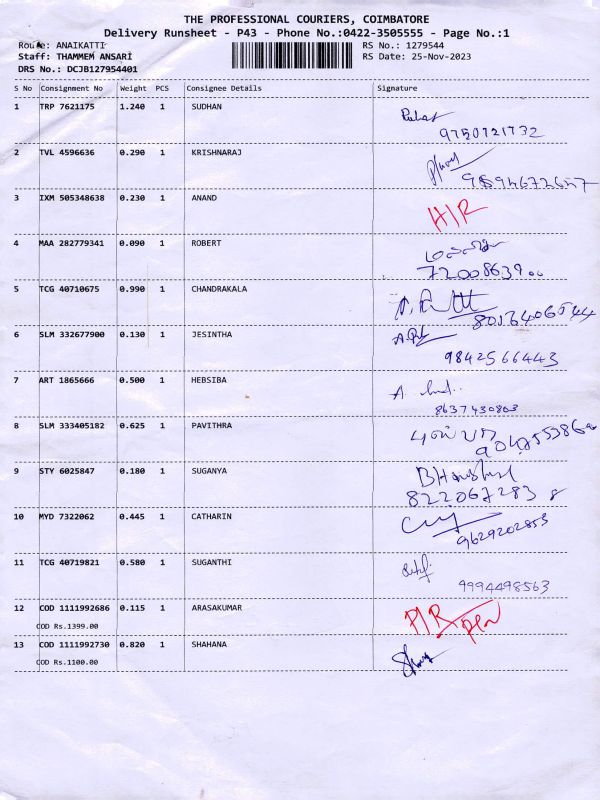 THE PROFESSIONAL COURIERS, COIMBATORE
Delivery Runsheet - P43 - Phone No.:0422-3505555 - Page No.:1
Route: ANAIKATTI RS No.: 1279544
Staff: THAMMEM ANSARI RS Date: 25-Nov-2023
DRS No.: DCJB127954401
S No Consignment No Weight PCS Consignee Details Signature
1 TRP 7621175 1.240 1 SUDHAN
2 TVL 4596636 0.290 1 KRISHNARAJ
3 IXM 505348638 0.230 1 ANAND
H/R
4 MAA 282779341 0.090 1 ROBERT
5 TCG 40710675 0.990 1 CHANDRAKALA
6 SLM 332677900 0.130 1 JESINTHA
9842566443
7 ART 1865666 0.500 1 HEBSIBA
8637430803
8 SLM 333405182 0.625 1 PAVITHRA
9 STY 6025847 0.180 1 SUGANYA
8220672838
10 MYD 7322062 0.445 1 CATHARIN
9629202853
11 TCG 40719821 0.580 1 SUGANTHI
9994498563
12 COD 1111992686 0.115 1 ARASAKUMAR
COD Rs.1399.00
13 COD 1111992730 0.820 1 SHAHANA
COD Rs.1100.00